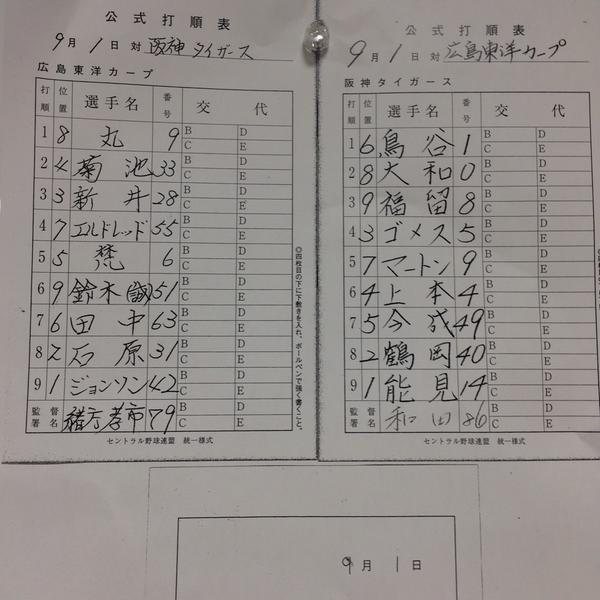 公式打順表
9月1日 対 阪神タイガース
広島東洋カープ
打順 位置 選手名 番号 交代
1 8 丸 9 B D C E
2 4 菊池 33 B D C E
3 3 新井 28 B D C E
4 7 エルドレッド 55 B D C E
5 5 梵 6 B D C E
6 9 鈴木誠 51 B D C E
7 6 田中 63 B D C E
8 2 石原 31 B D C E
9 1 ジョンソン 42 B D C E
監督署名 緒方孝市 79 B D C E
セントラル野球連盟 統一様式
◎四枚目の下に下敷きを入れ、ボールペンで強く書くこと。
公式打順表
9月1日 対 広島東洋カープ
阪神タイガース
打順 位置 選手名 番号 交代
1 6 鳥谷 1 B D C E
2 8 大和 0 B D C E
3 9 福留 8 B D C E
4 3 ゴメス 5 B D C E
5 7 マートン 9 B D C E
6 4 上本 4 B D C E
7 5 今成 49 B D C E
8 2 鶴岡 40 B D C E
9 1 能見 14 B D C E
監督署名 和田 86 B D C E
セントラル野球連盟 統一様式
9月1日